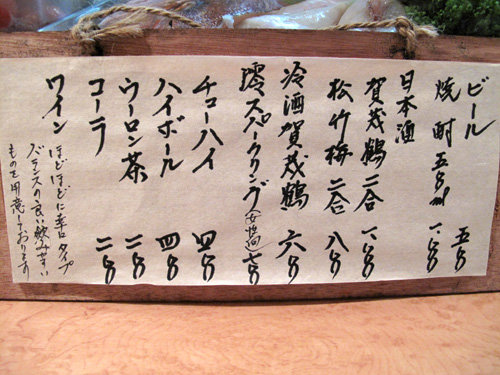 ビール 五百
焼酎五百ml 一、百
日本酒
賀茂鶴二合 一、百
松竹梅二合 八百
冷酒賀茂鶴 六百
澪スパークリング(女性向) 七百
チューハイ 四百
ハイボール 四百
ウーロン茶 二百
コーラ 二百
ワイン
ほどほどに辛口タイプ
バランスの良い飲み安い
ものを用意しております